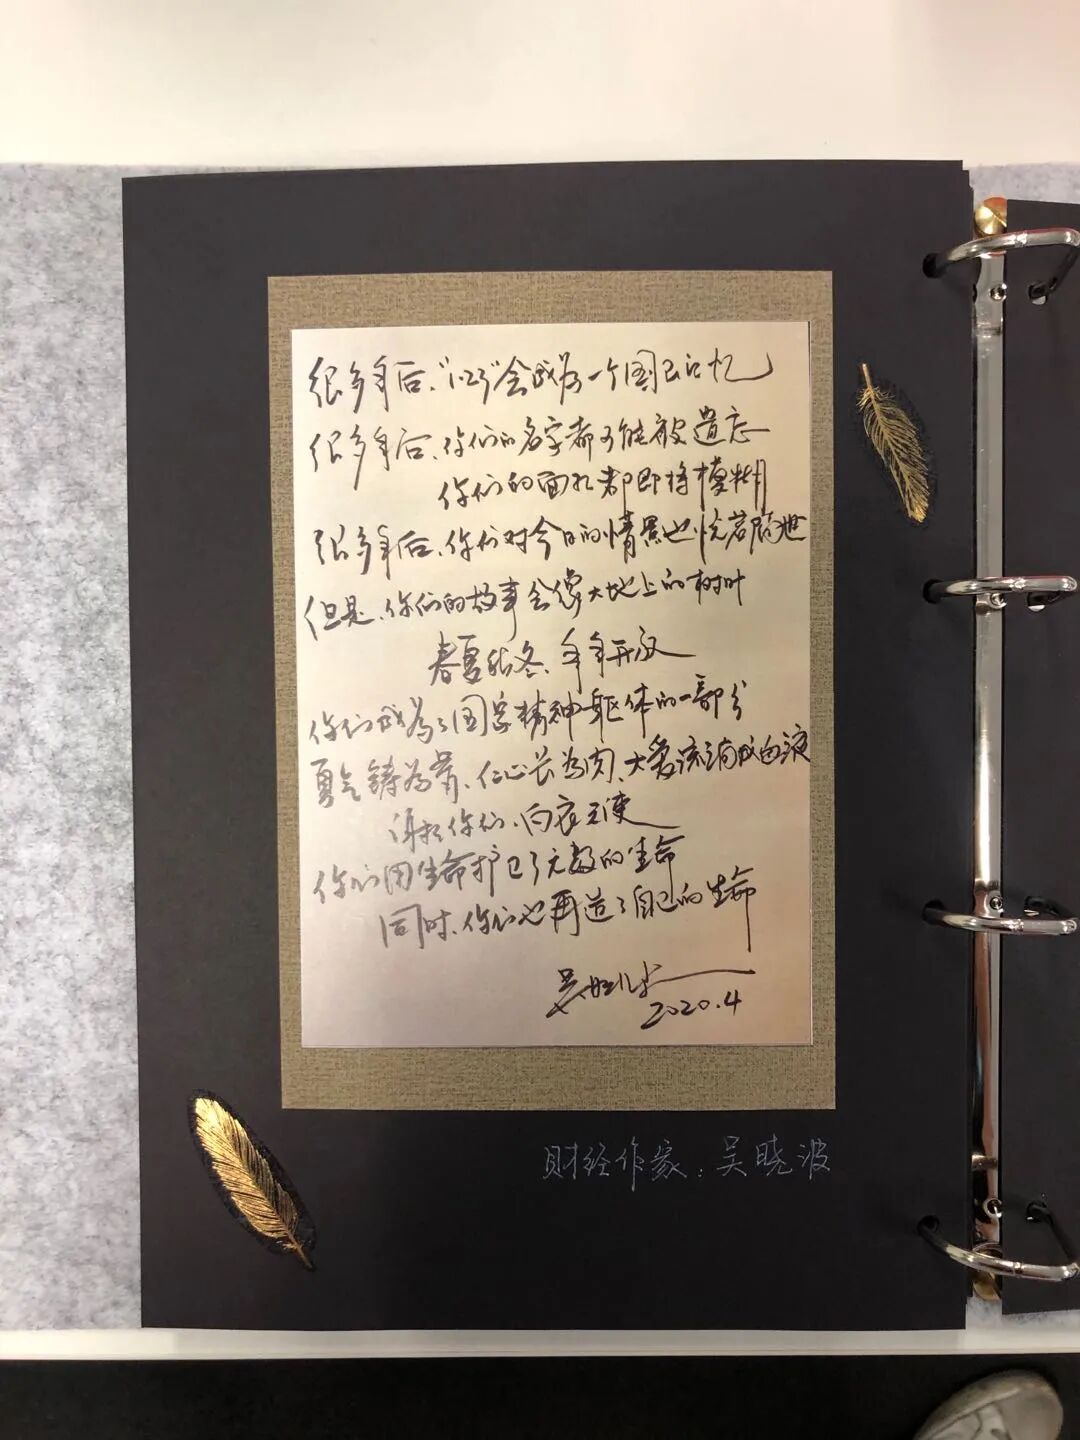 很多年后、"1.23"会成为一个国民记忆
很多年后、你们的名字都可能被遗忘
你们的面孔都即将模糊
很多年后、你们对今日的情景也恍若隔世
但是、你们的故事会像大地上的树叶
春夏秋冬、年年开放
你们成为了国家精神躯体的一部分
勇气铸为骨、仁心长为肉、大爱流淌成血液
谢谢你们、白衣天使
你们用生命护卫了无数的生命
同时、你们也再造了自己的生命
吴晓波
2020.4
财经作家：吴晓波